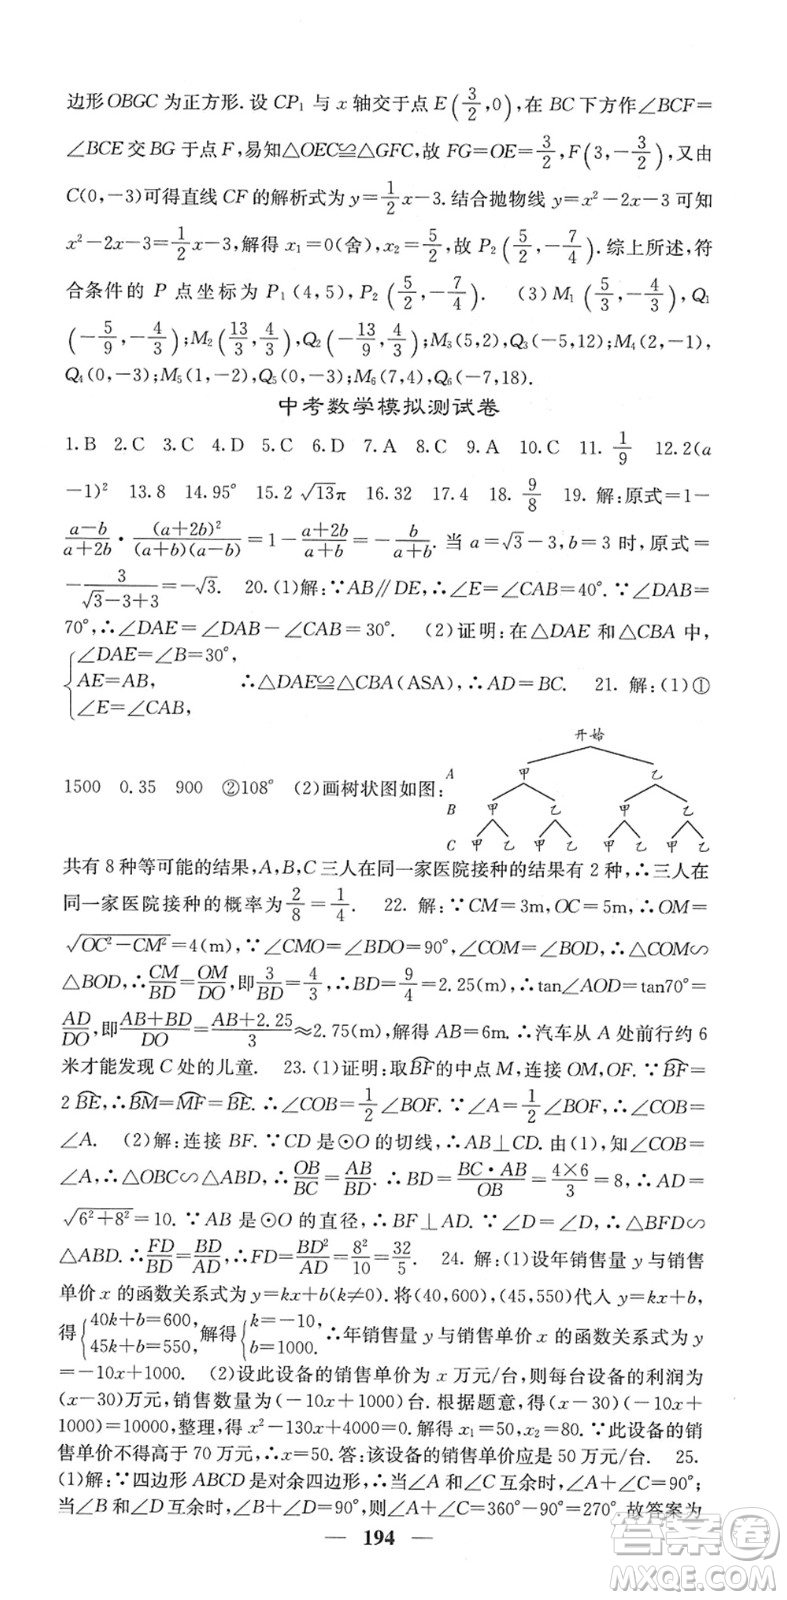 边形OBGC为正方形.设CP₁与x轴交于点E(3/2,0),在BC下方作∠BCF=
∠BCE交BG于点F,易知△OEC≌△GFC,故FG=OE=3/2,F(3,-3/2),又由
C(0,-3)可得直线CF的解析式为y=1/2x-3.结合抛物线y=x²-2x-3可知
x²-2x-3=1/2x-3,解得x₁=0(舍),x₂=5/2,故P₂(5/2,-7/4).综上所述,符
合条件的P点坐标为P₁(4,5),P₂(5/2,-7/4). (3)M₁(5/3,-4/3),Q₁
(-5/9,-4/3);M₂(13/3,4/3),Q₂(-13/9,4/3);M₃(5,2),Q₃(-5,12);M₄(2,-1),
Q₄(0,-3);M₅(1,-2),Q₅(0,-3);M₆(7,4),Q₆(-7,18).
中考数学模拟测试卷
1.B 2.C 3.C 4.D 5.C 6.D 7.A 8.C 9.A 10.C 11.1/9 12.2(a
-1)² 13.8 14.95° 15.2√13π 16.32 17.4 18.9/8 19.解:原式=1-
(a-b)/(a+2b)·(a+2b)²/((a+b)(a-b))=1-(a+2b)/(a+b)=-b/(a+b).当a=√3-3,b=3时,原式=
-3/(√3-3+3)=-√3. 20.(1)解:∵AB∥DE,∴∠E=∠CAB=40°.∵∠DAB=
70°,∴∠DAE=∠DAB-∠CAB=30°. (2)证明:在△DAE和△CBA中,
{∠DAE=∠B=30°,
AE=AB, ∴△DAE≌△CBA(ASA),∴AD=BC. 21.解:(1)①
∠E=∠CAB,
开始
A 甲 乙
1500 0.35 900 ②108° (2)画树状图如图:
B 甲 乙 甲 乙
C 甲 乙 甲 乙 甲 乙 甲 乙
共有8种等可能的结果,A,B,C三人在同一家医院接种的结果有2种,∴三人在
同一家医院接种的概率为2/8=1/4. 22.解:∵CM=3m,OC=5m,∴OM=
√(OC²-CM²)=4(m).∵∠CMO=∠BDO=90°,∠COM=∠BOD,∴△COM∽
△BOD,∴CM/BD=OM/DO,即3/BD=4/3,∴BD=9/4=2.25(m),∴tan∠AOD=tan70°=
AD/DO,即(AB+BD)/DO=(AB+2.25)/3≈2.75(m),解得AB=6m.∴汽车从A处前行约6
米才能发现C处的儿童. 23.(1)证明:取B͡F的中点M,连接OM,OF.∵B͡F=
2B͡E,∴B͡M=M͡F=B͡E,∴∠COB=1/2∠BOF.∵∠A=1/2∠BOF,∴∠COB=
∠A. (2)解:连接BF.∵CD是⊙O的切线,∴AB⊥CD.由(1),知∠COB=
∠A,∴△OBC∽△ABD,∴OB/BC=AB/BD.∴BD=BC·AB/OB=4×6/3=8,∴AD=
√(6²+8²)=10.∵AB是⊙O的直径,∴BF⊥AD.∵∠D=∠D,∴△BFD∽
△ABD.∴FD/BD=BD/AD,∴FD=BD²/AD=8²/10=32/5. 24.解:(1)设年销售量y与销售
单价x的函数关系式为y=kx+b(k≠0).将(40,600),(45,550)代入y=kx+b,
得{40k+b=600, 45k+b=550,解得{k=-10, b=1000.∴年销售量y与销售单价x的函数关系式为y
=-10x+1000. (2)设此设备的销售单价为x万元/台,则每台设备的利润为
(x-30)万元,销售数量为(-10x+1000)台.根据题意,得(x-30)(-10x+
1000)=10000,整理,得x²-130x+4000=0.解得x₁=50,x₂=80.∵此设备的销
售单价不得高于70万元,∴x=50.答:该设备的销售单价应是50万元. 25.
(1)解:∵四边形ABCD是对余四边形,∴当∠A与∠C互余时,∠A+∠C=90°;
当∠B和∠D互余时,∠B+∠D=90°,则∠A+∠C=360°-90°=270°.故答案为
194
答案圈
MXQE.COM